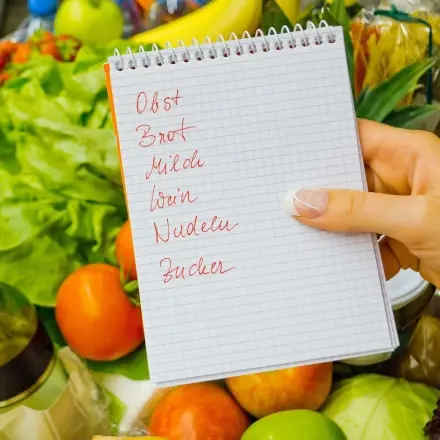 Obst
Brot
Milch
Wein
Nudeln
Zucker